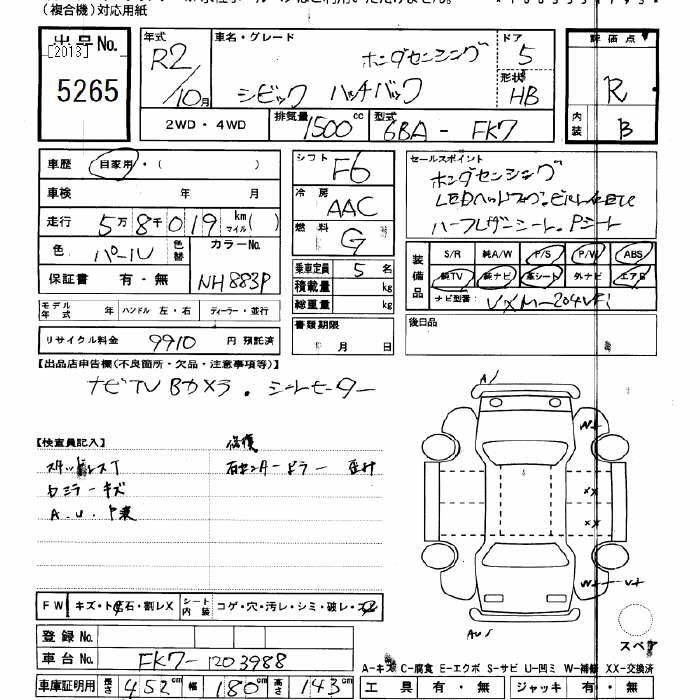 (複合機)対応用紙
出品No.
[2013]
5265
年式 車名・グレード ドア 評価点
R2 ホンダセンシング 5
10月 シビック ハッチバック 形状 HB R
2WD・4WD 排気量 1500 cc 型式 6BA-FK7 内装 B
車歴 自家用・( )
車検 年 月
走行 5万8千019 km マイル( )
色 パール 色替 カラーNo. NH883P
保証書 有・無
モデル年式 年 ハンドル 左・右 ディーラー・並行
リサイクル料金 9910 円 預託済
シフト F6
冷房 AAC
燃料 G
乗車定員 5 名
積載量 kg
総重量 kg
書類期限
月 日
セールスポイント
ホンダセンシング
ハーフレザーシート。Pシート
装備品 S/R 純A/W P/S P/W ABS
純TV 純ナビ 革シート 外ナビ エアB
ナビ型番: VXM-204VFi
後日品
【出品店申告欄(不良箇所・欠品・注意事項等)】
ナビTV Bカメラ。シートヒーター
【検査員記入】
修復
スタッドレスT 右センターピラー 歪 付
ミラーキズ
A.U.
FW キズ・ト石・割レX シート内装 コゲ・穴・汚レ・シミ・破レ・
登録No.
車台No. FK7-1203988
車庫証明用 長さ 452 cm 幅 180 cm 高さ 143 cm
スペア
A-キズ C-腐食 E-エクボ S-サビ U-凹ミ W-補修 XX-交換済
工具 有・無 ジャッキ 有・無